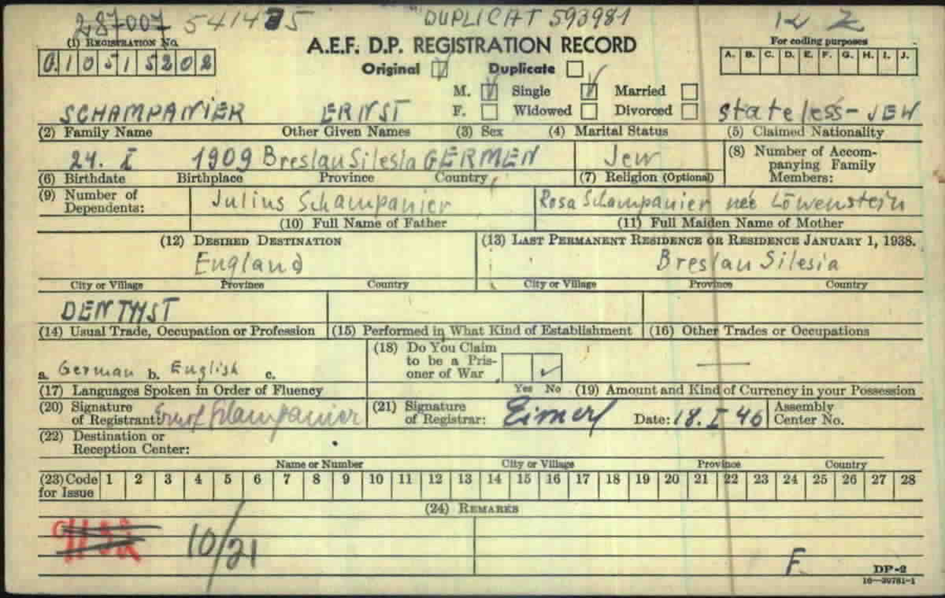 287007 541435 DUPLICAT 593981
(1) REGISTRATION NO.
A.E.F. D.P. REGISTRATION RECORD
For coding purposes
010515208
Original Duplicate
A. B. C. D. E. F. G. H. I. J.
M. Single Married
F. Widowed Divorced
SCHAMPANIER ERNST stateless-JEW
(2) Family Name Other Given Names (3) Sex (4) Marital Status (5) Claimed Nationality
24. I 1909 Breslau Silesia GERMEN Jew
(8) Number of Accompanying Family Members:
(6) Birthdate Birthplace Province Country (7) Religion (Optional)
(9) Number of Dependents:
Julius Schampanier Rosa Schampanier neé Löwenstein
(10) Full Name of Father (11) Full Maiden Name of Mother
(12) DESIRED DESTINATION (13) LAST PERMANENT RESIDENCE OR RESIDENCE JANUARY 1, 1938.
England Breslau Silesia
City or Village Province Country City or Village Province Country
DENTYST
(14) Usual Trade, Occupation or Profession (15) Performed in What Kind of Establishment (16) Other Trades or Occupations
(18) Do You Claim to be a Prisoner of War
a. German b. English c. —
Yes No
(17) Languages Spoken in Order of Fluency (19) Amount and Kind of Currency in your Possession
(20) Signature of Registrant: Ernst Schampanier (21) Signature of Registrar: Date: 18.I 46 Assembly Center No.
(22) Destination or Reception Center:
Name or Number City or Village Province Country
(23) Code for Issue 1 2 3 4 5 6 7 8 9 10 11 12 13 14 15 16 17 18 19 20 21 22 23 24 25 26 27 28
(24) REMARKS
10/21
F.
DP-2
16—39781-1